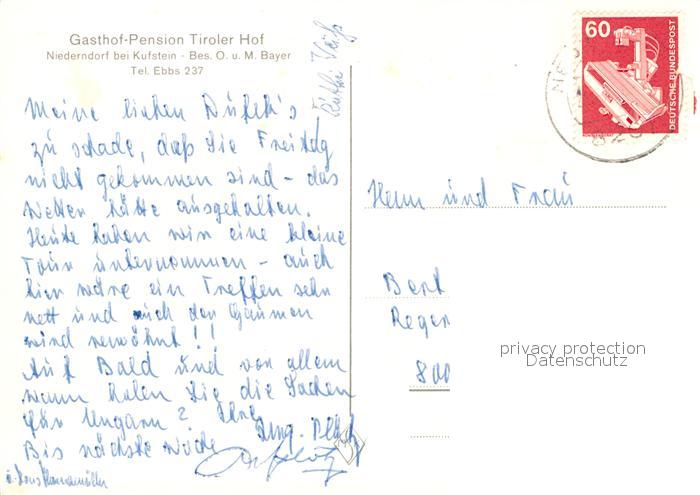 Gasthof-Pension Tiroler Hof
Niederndorf bei Kufstein - Bes. O. u. M. Bayer
Tel. Ebbs 237
Meine lieben
zu schade, daß Sie Freitag
nicht gekommen sind - das
Wetter hätte ausgehalten.
Heute haben wir eine kleine
Tour unternommen - auch
hier wäre ein Treffen sehr
nett und auch der Gaumen
wird verwöhnt!!
Auf Bald und vor allem
wann holen Sie die Sachen
für Ungarn? Ihre
Bis nächste Woche
60
DEUTSCHE BUNDESPOST
Herrn und Frau
Bert
Regen
800
privacy protection
Datenschutz